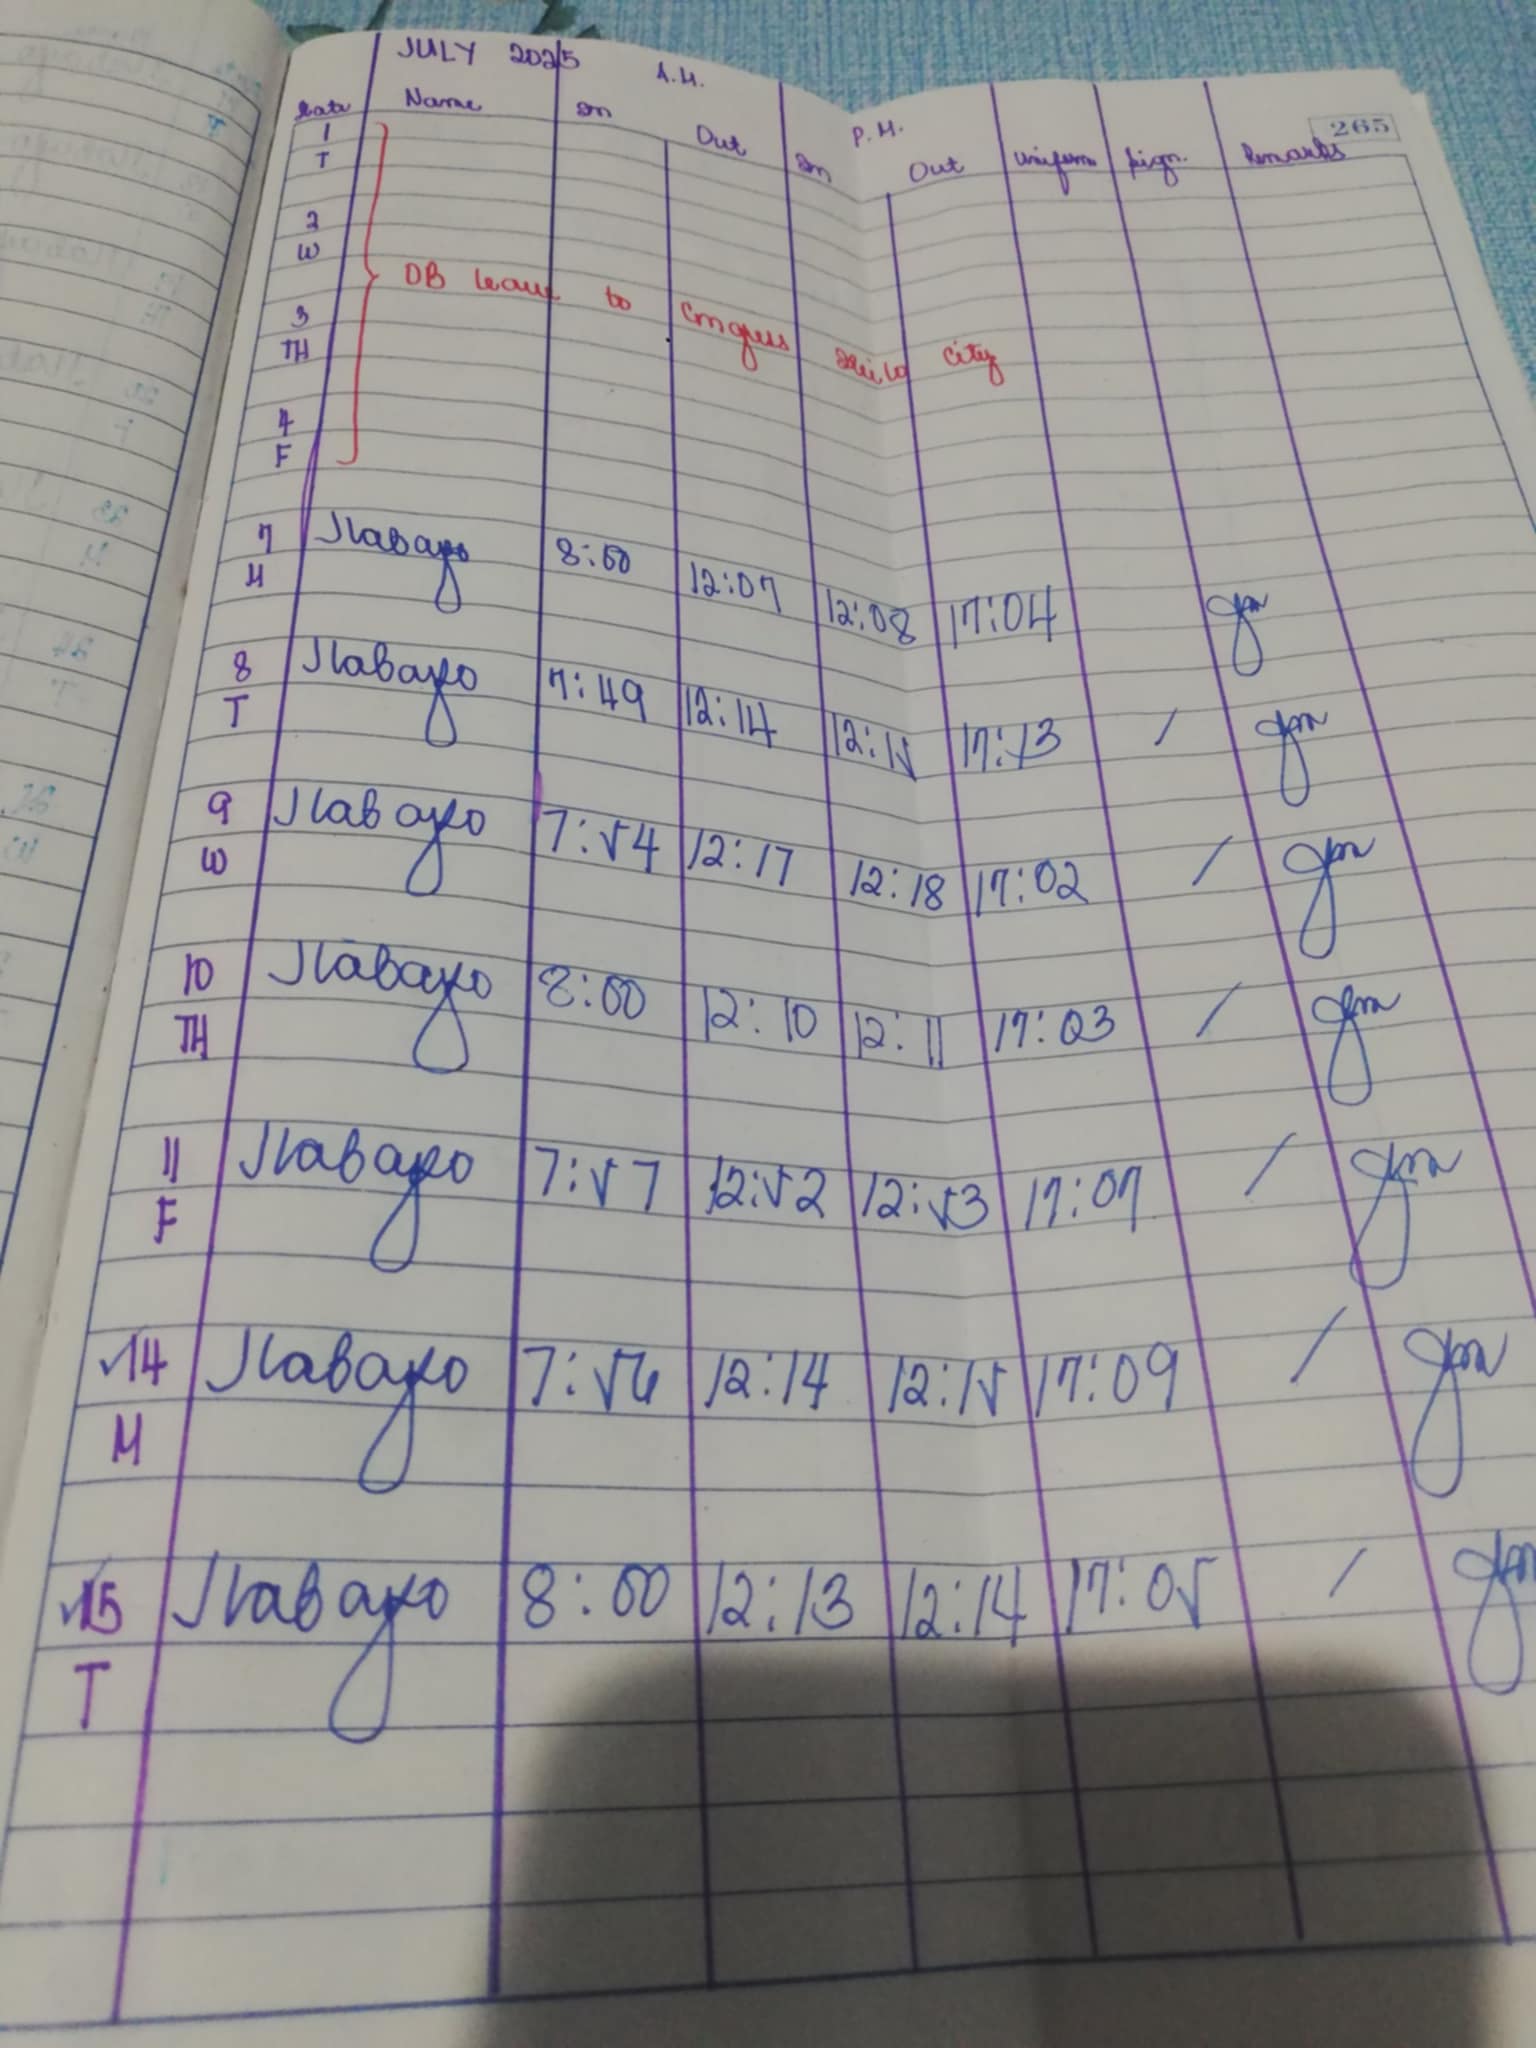 JULY 2025 A.M. P.M. 265
Date Name In Out In Out Uniform Sign. Remarks
1
T
2
W
OB leave to Congress Iloilo City
3
TH
4
F
7 Nabayo 8:00 12:07 12:08 17:04
M
8 Nabayo 7:49 12:14 12:15 17:13 /
T
9 Nabayo 7:54 12:17 12:18 17:02 /
W
10 Nabayo 8:00 12:10 12:11 17:03 /
TH
11 Nabayo 7:57 12:52 12:53 17:07 /
F
14 Nabayo 7:56 12:14 12:15 17:09 /
M
15 Nabayo 8:00 12:13 12:14 17:05 /
T